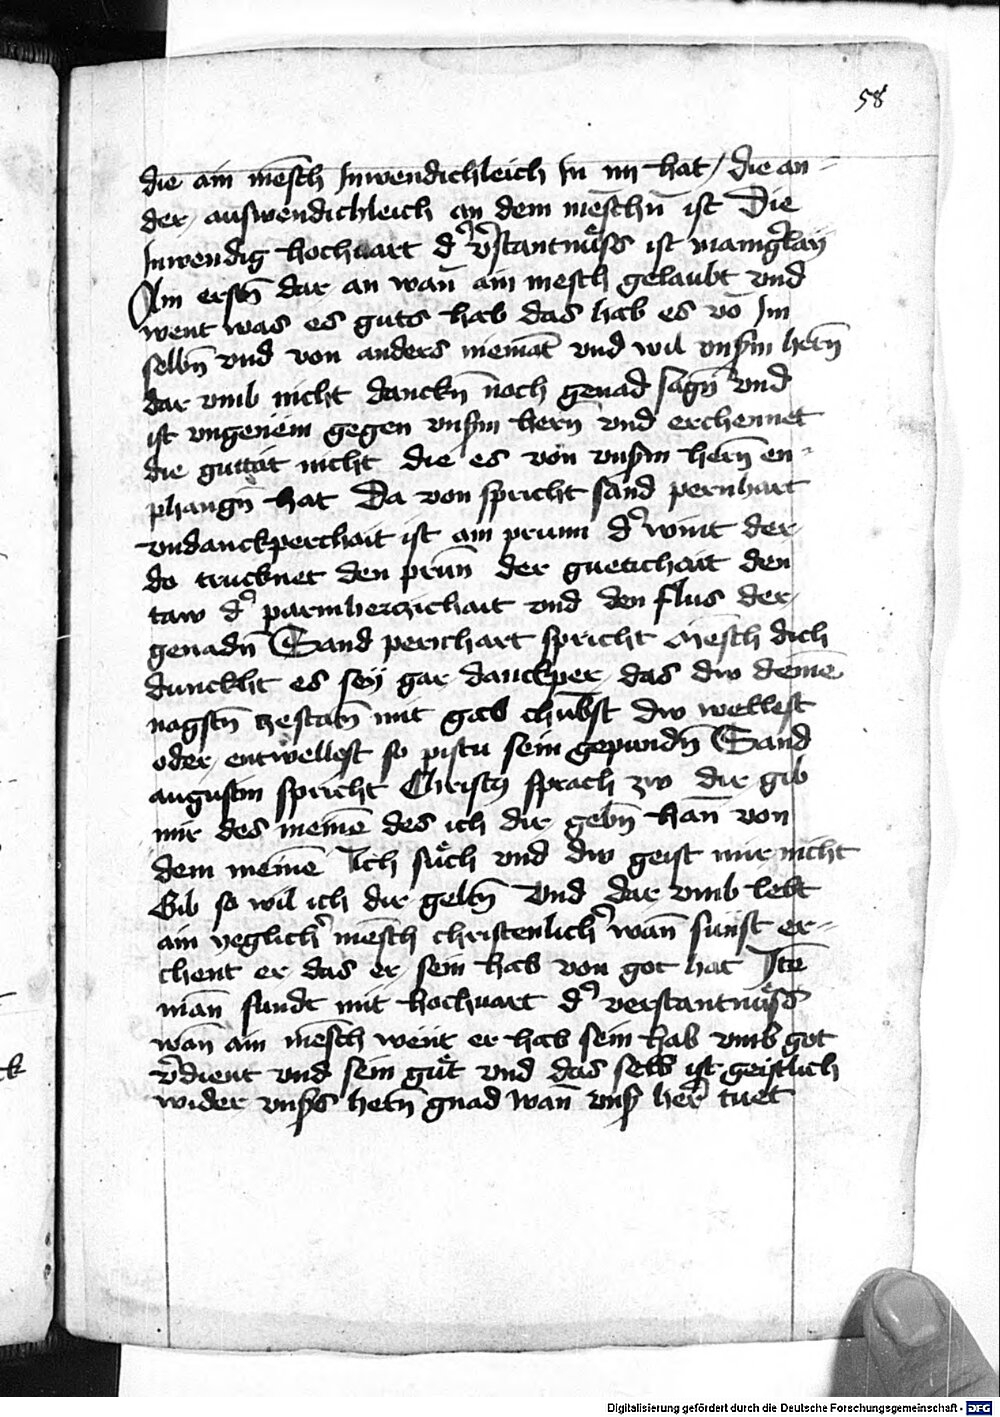 58
die ain mēsch Inwendichleich In im hat / die an-
der auswendichleich an dem mēschn̄ ist Die
Inwendig hochuart d' v'stantnüss ist manig'lay
Am erstn̄ dar an wan̄ ain mesch gelaubt vnd
went was es guts hab das hab es vō Im
selbn̄ vnd von anders niemāt vnd wil vnsm herrn̄
dar vmb nicht danckn̄ noch genad sagn̄ vnd
ist vngenëm gegen vnsm hern̄ vnd erchennet
die guttät nicht die es von vnsm herrn̄ en-
phangn̄ hat Da von spricht sand pernhart
vndanckperchait ist ain prunn d' wint der
do trucknet den prūn der guetichait den
taw d' parmherczichait vnd den flus der
genadn̄ Sand pernhart spricht Mēsch dich
dunckht es sey gar danckper das dw deinē
nagstn̄ zestatn̄ mit gab chūbst dw wellest
oder entwellest so pistu sein gepundn̄ Sand
augustin spricht Christus sprach zw dir gib
mir des meinē des ich dir gebn̄ han̄ von
dem meinē Ich süch vnd dw geist mir nicht
Gib so wil ich dir geltn̄ Vnd dar vmb lebt
ain yeglich' mēsch christenlich' wan̄ sunst er-
chent er das er sein hab von got hat Itē
man̄ sundt mit hochuart d' verstantnüss
wan̄ ain mēsch wënt er hab sein hab vmb got
v'dient vnd sein güt vnd das selb ist geistlich
wider vnss herrn̄ gnad wan̄ vns her' tuet
ck
Digitalisierung gefördert durch die Deutsche Forschungsgemeinschaft - DFG